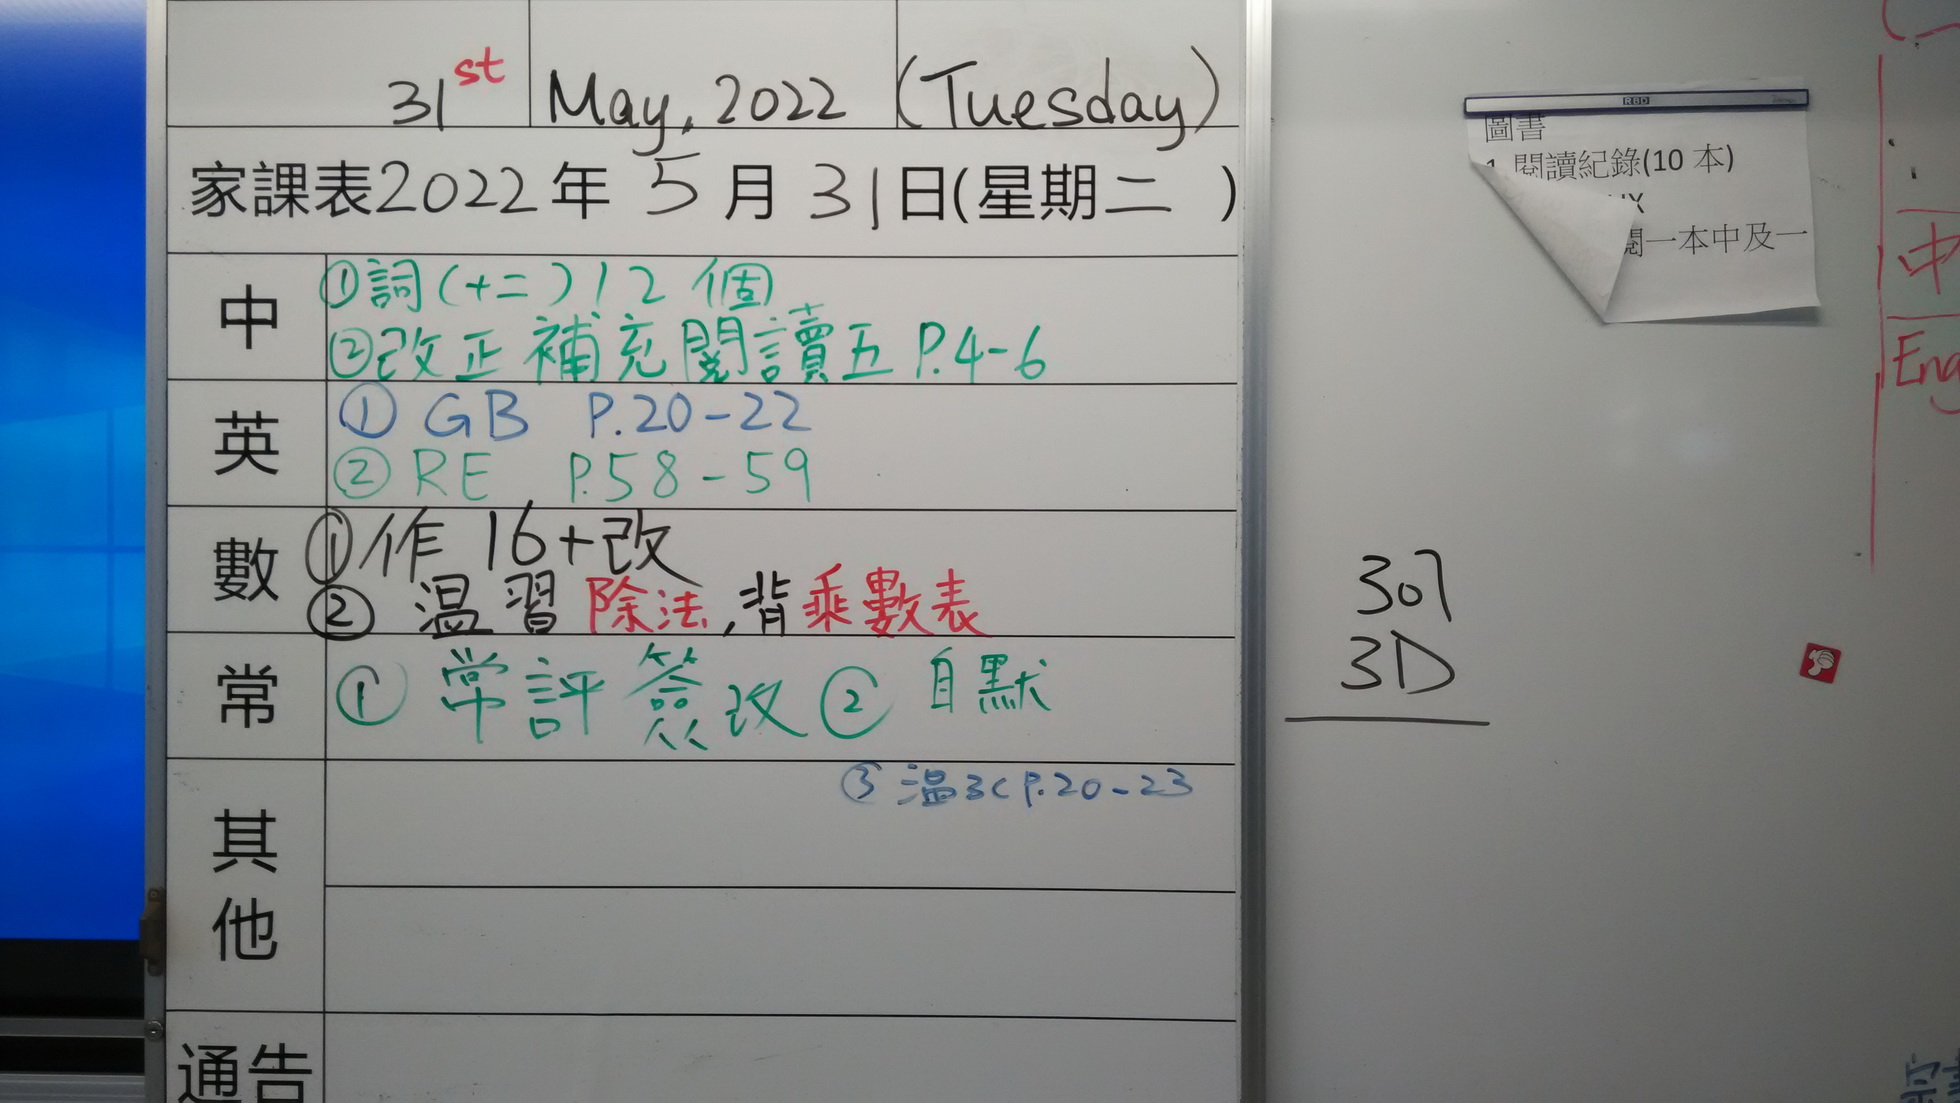 31st May, 2022 (Tuesday)
家課表2022年 5 月 31日(星期二 )
中
①詞(十二)12個
②改正補充閱讀五 P.4-6
英
① GB P.20-22
② RE P.58-59
數
①作 16+改
② 温習除法,背乘數表
常
① 常評簽改 ② 自默
③ 温3C P.20-23
其他
通告
RBD
圖書
閱讀紀錄(10 本)
閱一本中及一
3D
中
Eng